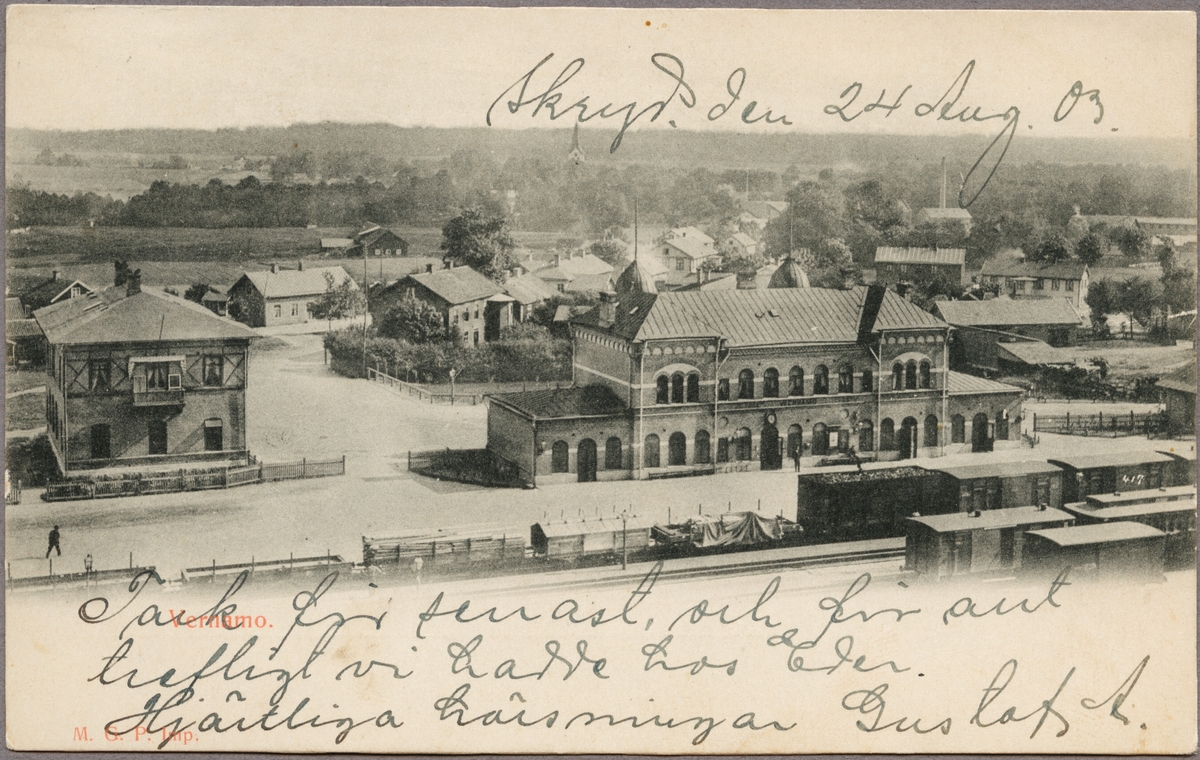 Skryd. den 24 Aug. 03.
417
Tack för senast, och för allt
trefligt vi hade hos Eder.
Vernamo.
Hjärtliga hälsningar Gustaf A.
M. G. P. Imp.